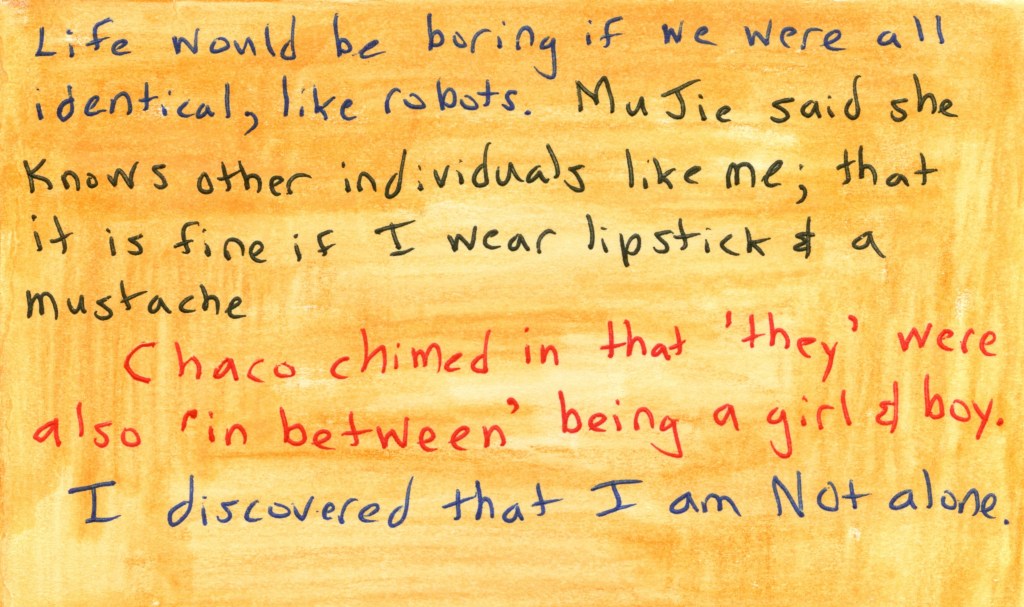 Life would be boring if we were all
identical, like robots. MuJie said she
knows other individuals like me; that
it is fine if I wear lipstick & a
mustache
Chaco chimed in that 'they' were
also 'in between' being a girl & boy.
I discovered that I am Not alone.